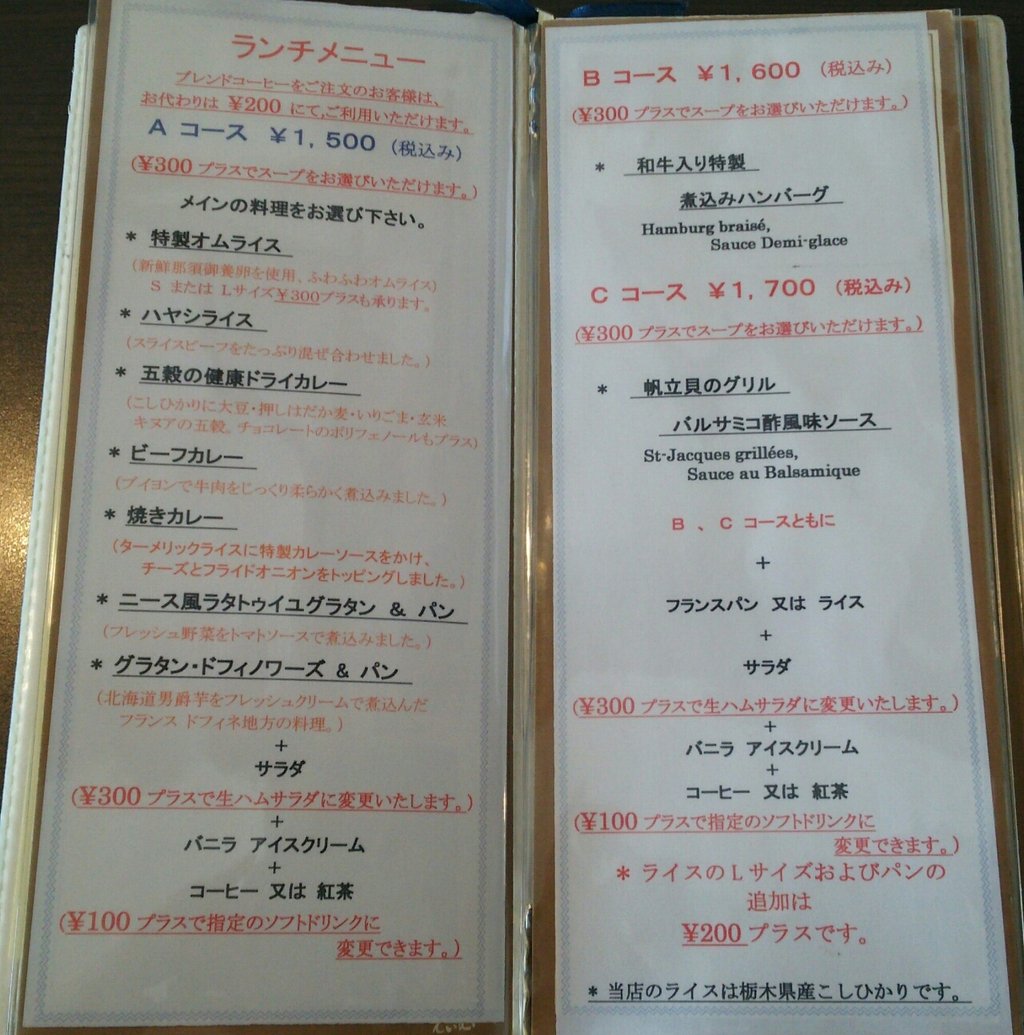 ランチメニュー
ブレンドコーヒーをご注文のお客様は、
お代わりは ¥200 にて、ご利用いただけます。
A コース ¥1,500 (税込み)
(¥300 プラスでスープをお選びいただけます。)
メインの料理をお選び下さい。
* 特製オムライス
(新鮮那須御養卵を使用、ふわふわオムライス)
S または Lサイズ¥300プラスも承ります。
* ハヤシライス
(スライスビーフをたっぷり混ぜ合わせました。)
* 五穀の健康ドライカレー
(こしひかりに大豆・押しはだか麦・いりごま・玄米
キヌアの五穀。チョコレートのポリフェノールもプラス)
* ビーフカレー
(ブイヨンで牛肉をじっくり柔らかく煮込みました。)
* 焼きカレー
(ターメリックライスに特製カレーソースをかけ、
チーズとフライドオニオンをトッピングしました。)
* ニース風ラタトゥイユグラタン & パン
(フレッシュ野菜をトマトソースで煮込みました。)
* グラタン・ドフィノワーズ & パン
(北海道男爵芋をフレッシュクリームで煮込んだ
フランス ドフィネ地方の料理。)
+
サラダ
(¥300 プラスで生ハムサラダに変更いたします。)
+
バニラ アイスクリーム
+
コーヒー 又は 紅茶
(¥100 プラスで指定のソフトドリンクに
変更できます。)
B コース ¥1,600 (税込み)
(¥300 プラスでスープをお選びいただけます。)
* 和牛入り特製
煮込みハンバーグ
Hamburg braisé,
Sauce Demi-glace
C コース ¥1,700 (税込み)
(¥300 プラスでスープをお選びいただけます。)
* 帆立貝のグリル
バルサミコ酢風味ソース
St-Jacques grillées,
Sauce au Balsamique
B 、 C コースともに
+
フランスパン 又は ライス
+
サラダ
(¥300 プラスで生ハムサラダに変更いたします。)
+
バニラ アイスクリーム
+
コーヒー 又は 紅茶
(¥100 プラスで指定のソフトドリンクに
変更できます。)
* ライスのLサイズおよびパンの
追加は
¥200 プラスです。
* 当店のライスは栃木県産こしひかりです。